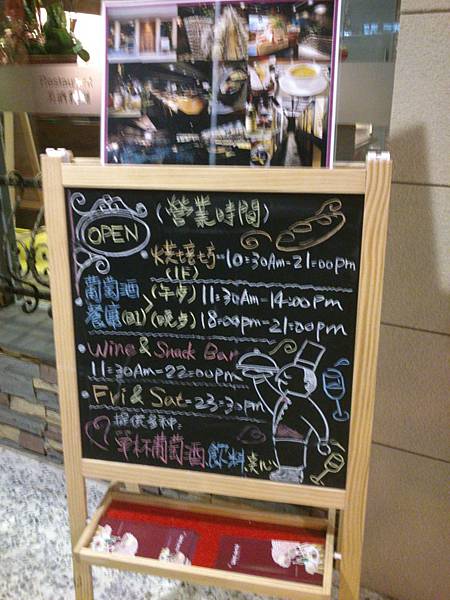 Restaurant
OPEN
(營業時間)
烘焙坊-10:30Am-21:00pm
(1F)
葡萄酒 (午店) 11:30Am-14:00pm
餐廳(B1) (晚店) 18:00pm-21:00pm
Wine & Snack Bar
11:30Am-22:00pm
Fri & Sat-23:30pm
提供多種:
單杯葡萄酒飲料點心